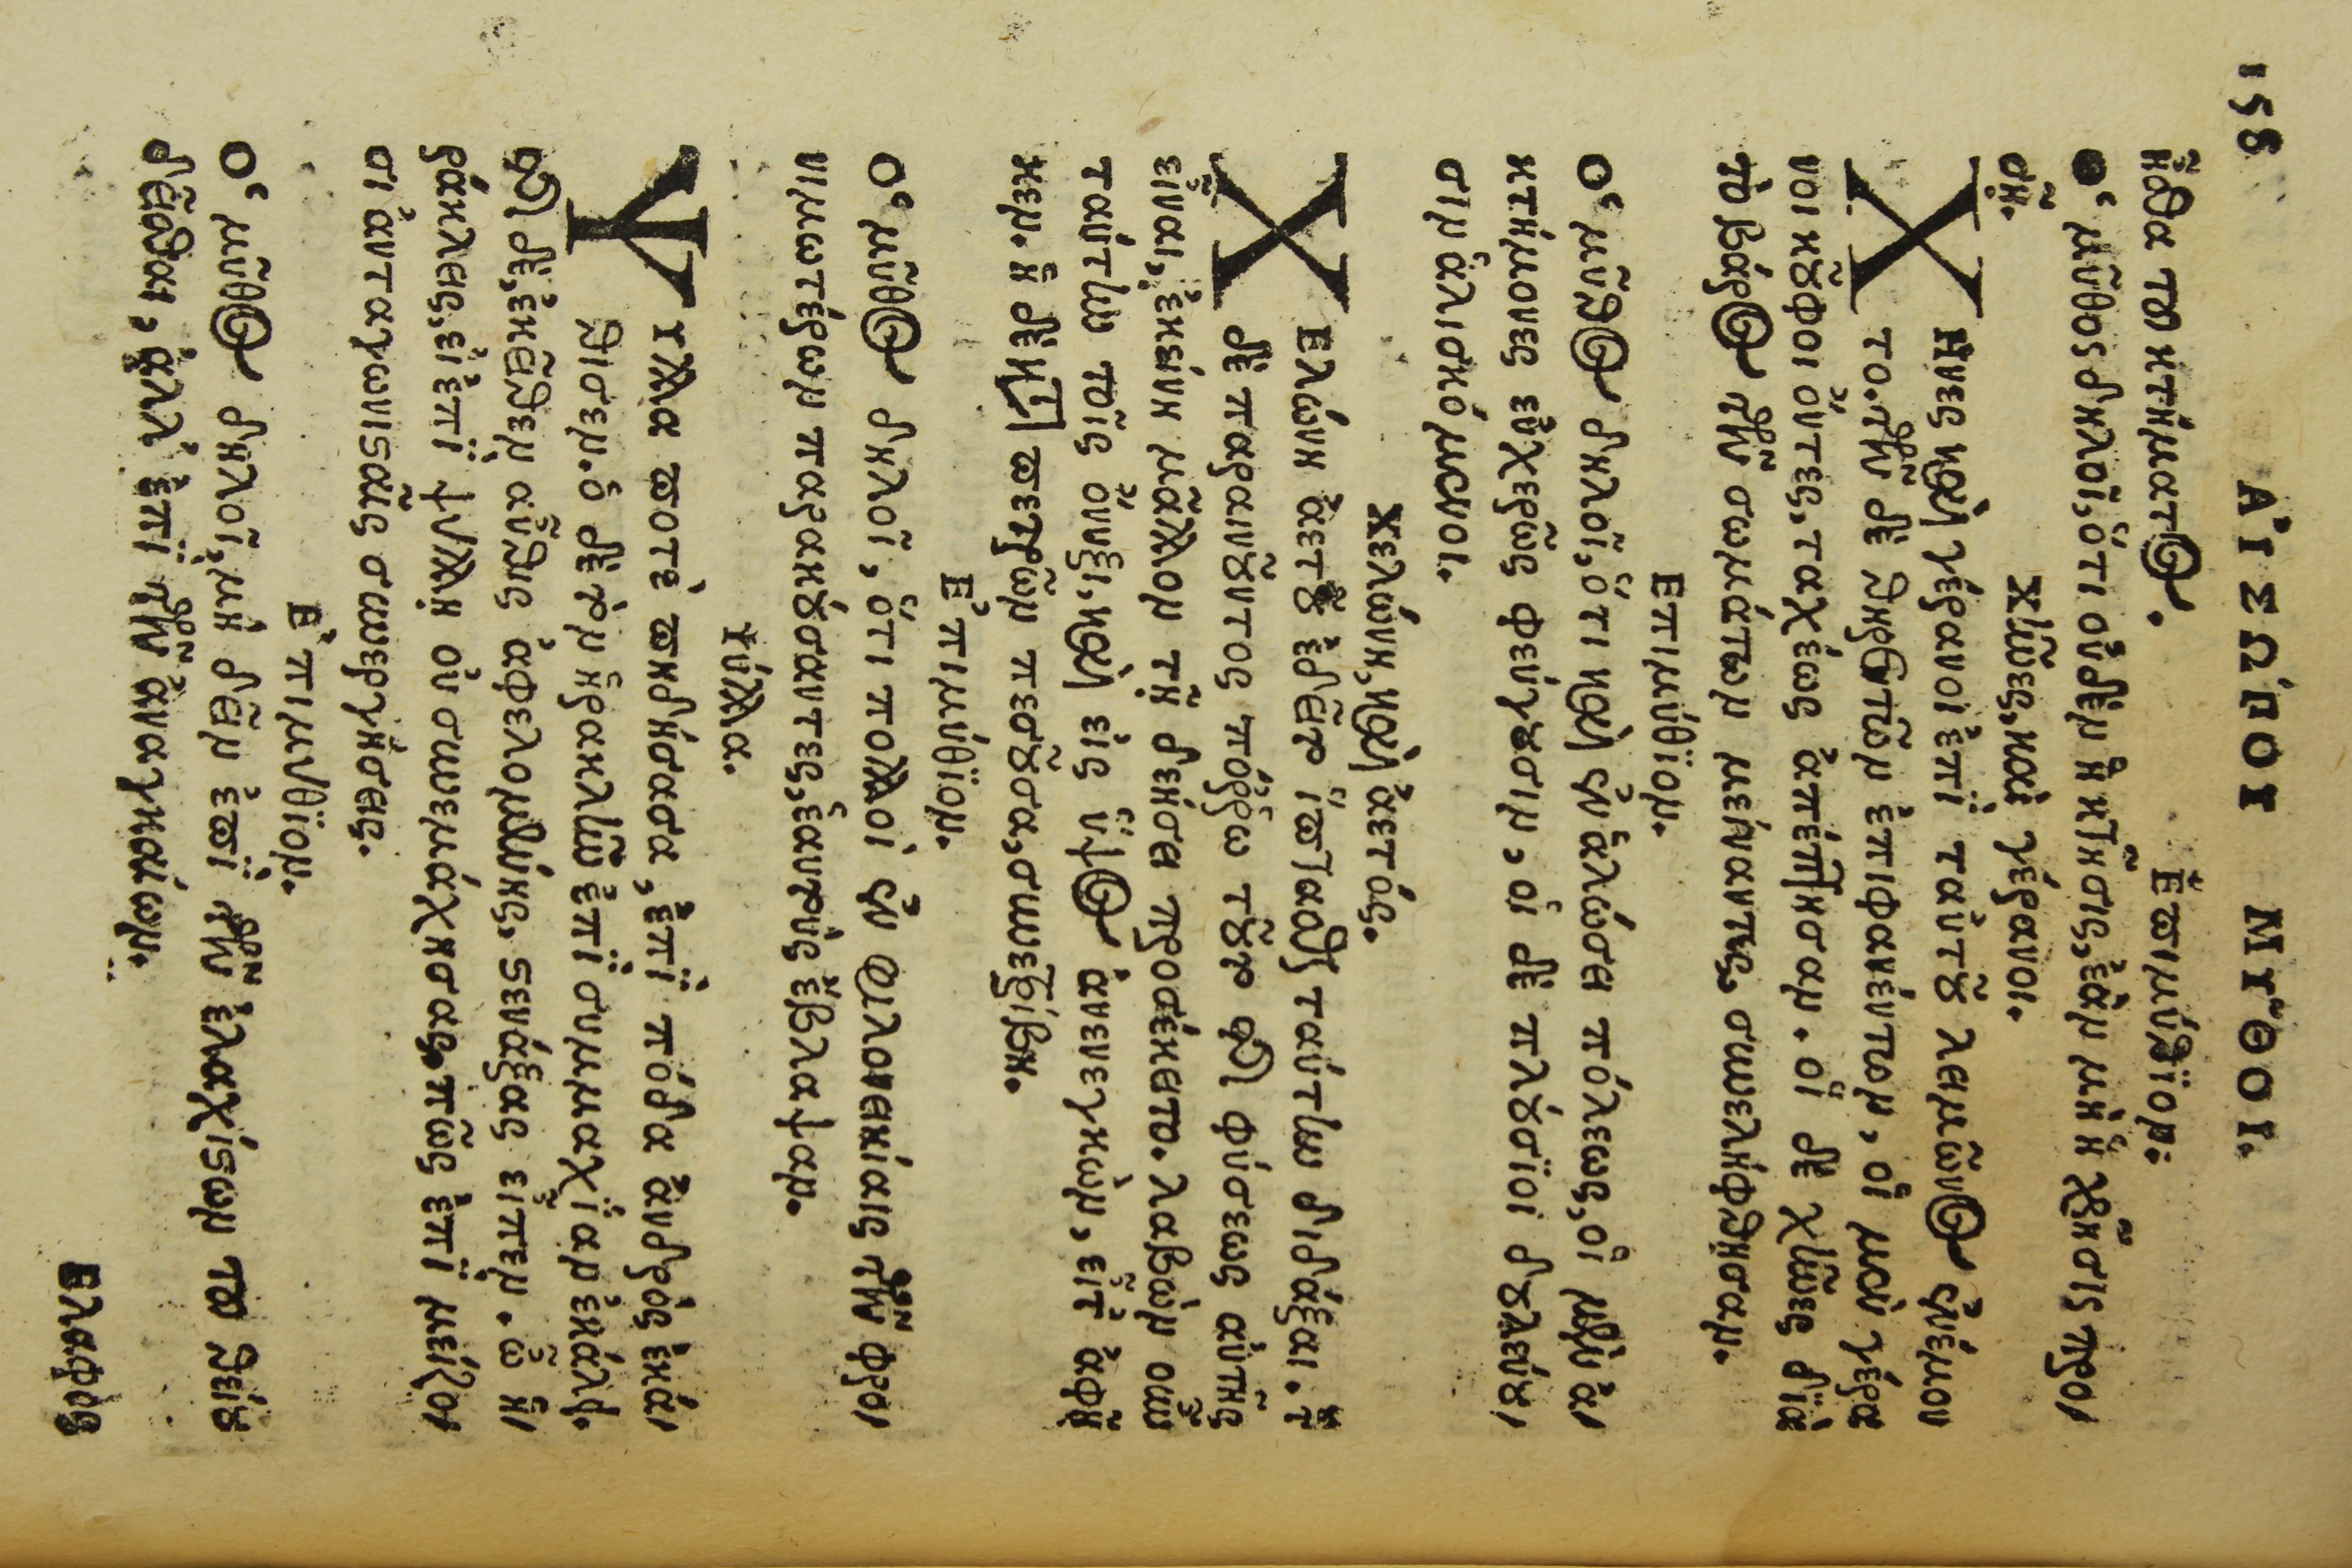 158 ΑἸΣΩΠΟΥ ΜΥ͂ΘΟΙ.
ᾖσθα τοῦ κτήματος.
Ἐπιμύθιον.
Ὁ μῦθος δηλοῖ, ὅτι οὐδὲν ἡ κτῆσις, ἐὰν μὴ ἡ χρῆσις προσ-
ῇ.
Χῆνες, καὶ γέρανοι.
Χῆνες καὶ γέρανοι ἐπὶ ταὐτοῦ λειμῶνος ἐνέμον
το. τῶν δὲ θηρευτῶν ἐπιφανέντων, οἱ μὲν γέρα
νοι κοῦφοι ὄντες, ταχέως ἀπέπτησαν. οἱ δὲ χῆνες διὰ
τὸ βάρος τῶν σωμάτων μείναντες, συνελήφθησαν.
Ἐπιμύθιον.
Ὁ μῦθος δηλοῖ, ὅτι καὶ ἐν ἁλώσει πόλεως, οἱ μὲν ἀ-
κτήμονες εὐχερῶς φεύγουσιν, οἱ δὲ πλούσιοι δουλεύου-
σιν ἁλισκόμενοι.
Χελώνη, καὶ ἀετός.
Χελώνη ἀετοῦ ἐδεῖτο ἵπτασθαι ταύτην διδάξαι. τοῦ
δὲ παραινοῦντος πόρρω τοῦτο τῆς φύσεως αὐτῆς
εἶναι, ἐκείνη μᾶλλον τῇ δεήσει προσέκειτο. λαβὼν οὖν
ταύτην τοῖς ὄνυξι, καὶ εἰς ὕψος ἀνενεγκὼν, εἶτ' ἀφῆ
κεν. ἡ δὲ κατὰ πετρῶν πεσοῦσα, συνετρίβη.
Ἐπιμύθιον.
Ὁ μῦθος δηλοῖ, ὅτι πολλοὶ ἐν φιλονεικίαις τῶν φρο-
νιμωτέρων παρακούσαντες, ἑαυτοὺς ἔβλαψαν.
Ψύλλα.
Ψύλλα ποτὲ πηδήσασα, ἐπὶ πόδα ἀνδρὸς ἐκά-
θισεν. ὁ δὲ τὸν ἡρακλῆν ἐπὶ συμμαχίαν ἐκάλει.
τῆς δὲ, ἐκεῖθεν αὖθις ἀφαλομένης, στενάξας εἶπεν. ὦ ἡ-
ράκλεις, εἰ ἐπὶ ψύλλῃ οὐ συνεμάχησας, πῶς ἐπὶ μείζο-
σι ἀνταγωνισταῖς συνεργήσεις.
Ἐπιμύθιον.
Ὁ μῦθος δηλοῖ, μὴ δεῖν ἐπὶ τῶν ἐλαχίστων τοῦ θείου
δεῖσθαι, ἀλλ' ἐπὶ τῶν ἀναγκαίων.
Ἔλαφος